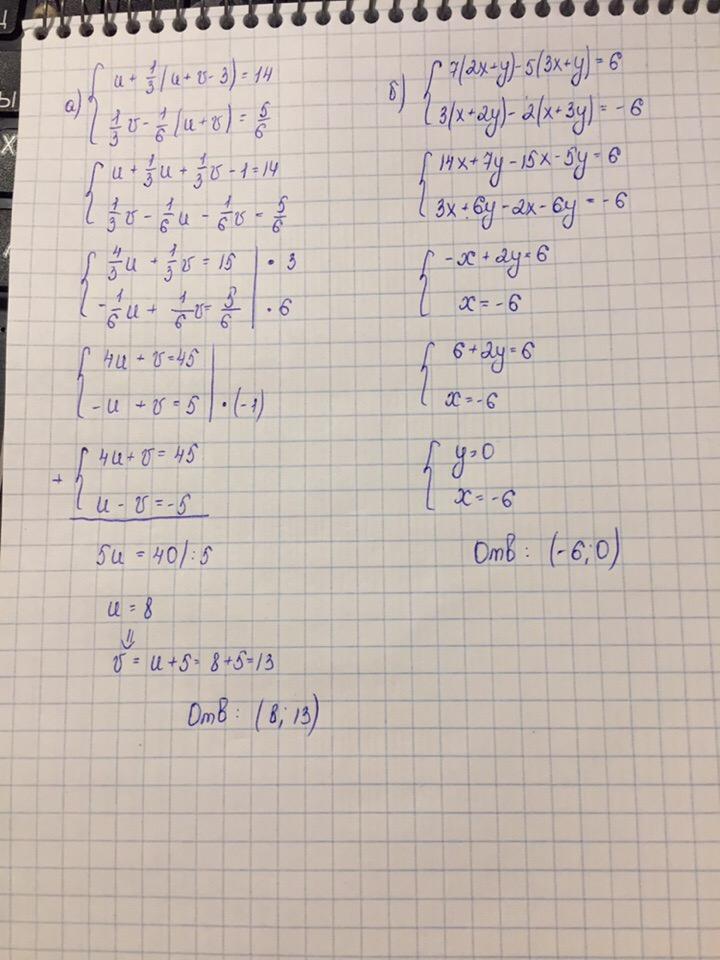 а) { u + 1/3 (u + v - 3) = 14
1/3 v - 1/6 (u + v) = 5/6
{ u + 1/3 u + 1/3 v - 1 = 14
1/3 v - 1/6 u - 1/6 v = 5/6
{ 4/3 u + 1/3 v = 15 | · 3
- 1/6 u + 1/6 v = 5/6 | · 6
{ 4u + v = 45
-u + v = 5 | · (-1)
+ { 4u + v = 45
u - v = -5
5u = 40 | : 5
u = 8
⇓
v = u + 5 = 8 + 5 = 13
Отв: (8; 13)
б) { 7(2x+y) - 5(3x+y) = 6
3(x+2y) - 2(x+3y) = -6
{ 14x + 7y - 15x - 5y = 6
3x + 6y - 2x - 6y = -6
{ -x + 2y = 6
x = -6
{ 6 + 2y = 6
x = -6
{ y = 0
x = -6
Отв: (-6; 0)